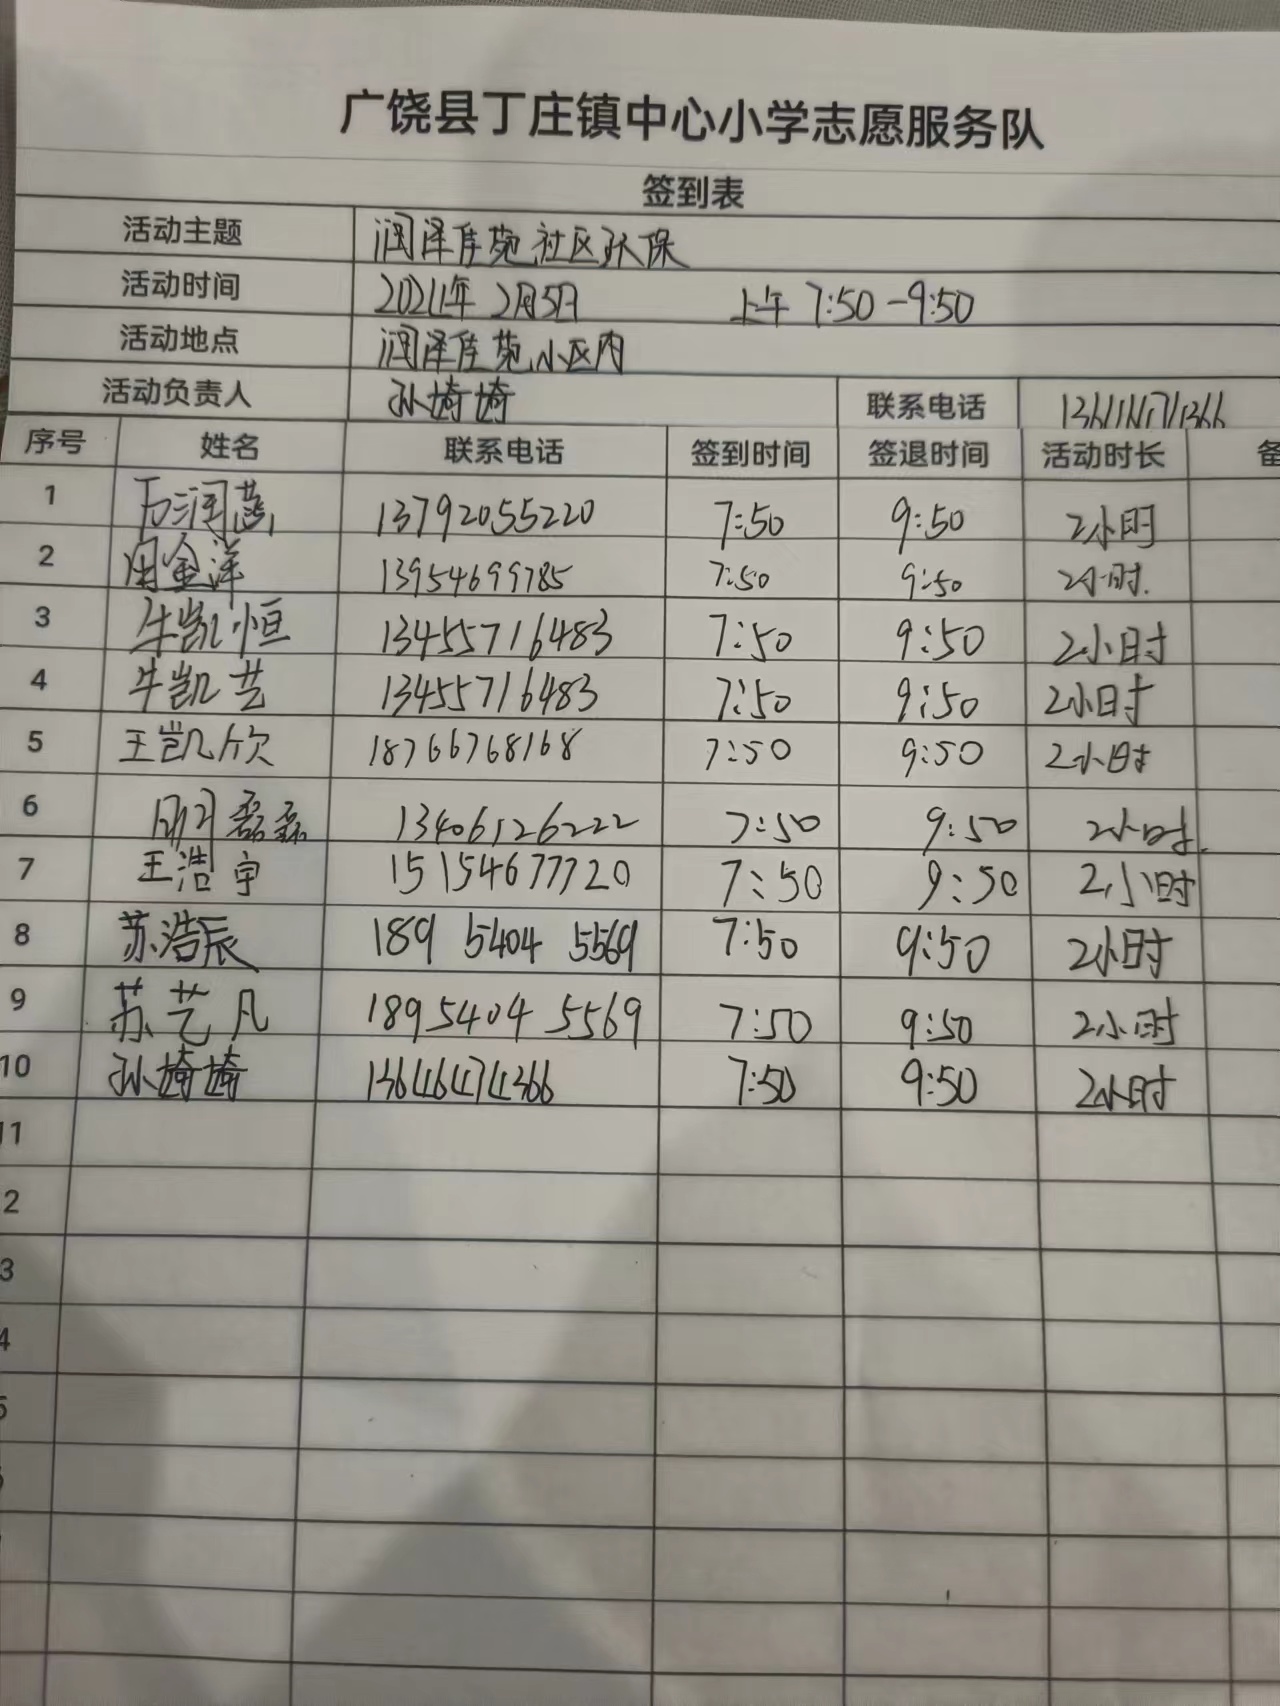 广饶县丁庄镇中心小学志愿服务队
签到表
活动主题 润泽佳苑社区环保
活动时间 2024年2月5日 上午 7:50-9:50
活动地点 润泽佳苑小区内
活动负责人 孙埼埼 联系电话 13646474366
序号 姓名 联系电话 签到时间 签退时间 活动时长 备
1 13792055220 7:50 9:50 2小时
2 金洋 13954699785 7:50 9:50 2小时.
3 牛凯恒 13455716483 7:50 9:50 2小时
4 牛凯艺 13455716483 7:50 9:50 2小时
5 王凯欣 18766768168 7:50 9:50 2小时
6 磊磊 13406126222 7:50 9:50 2小时.
7 王浩宇 15154677720 7:50 9:50 2小时
8 苏浩辰 189 5404 5569 7:50 9:50 2小时
9 苏艺凡 1895404 5569 7:50 9:50 2小时
10 孙埼埼 13646474366 7:50 9:50 2小时
11
2
3
4
5